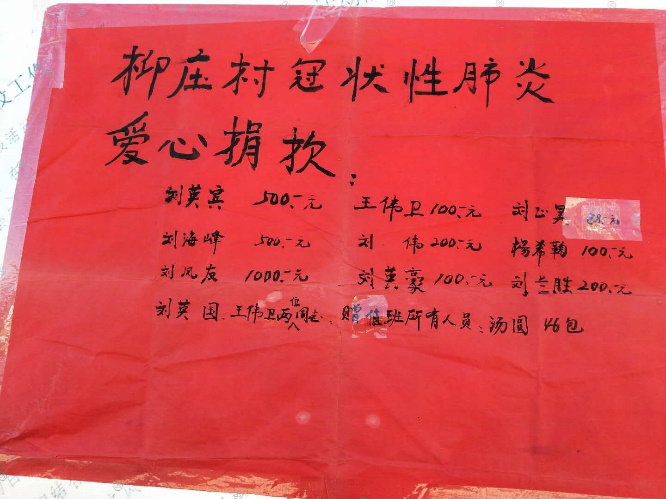 柳庄村冠状性肺炎
爱心捐款：
刘英宾 500.-元 王伟卫 100.-元 刘正昊 88.-元
刘海峰 500.-元 刘 伟 200.-元 杨希鞠 100.-元
刘凤友 1000.-元 刘英豪 100.-元 刘兰胜 200.-元
刘英国、王伟卫两位同志：赠值班所有人员：汤圆 46包